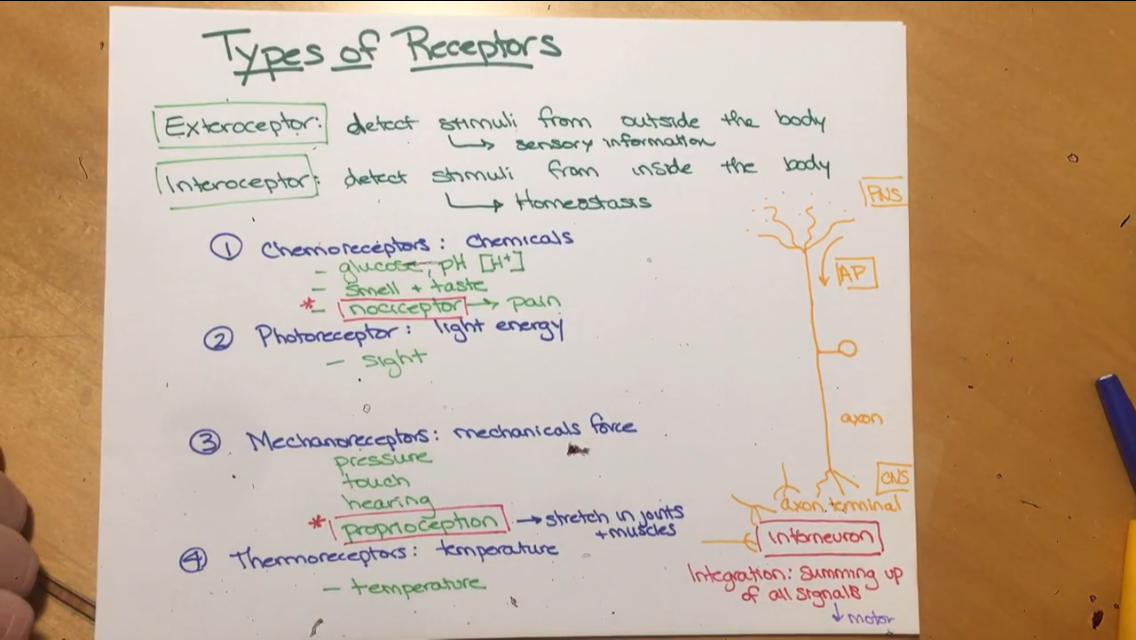 Types of Receptors
Exteroceptor: detect stimuli from outside the body
↳ sensory information
Interoceptor: detect stimuli from inside the body
↳ Homeostasis
① Chemoreceptors: chemicals
- glucose, pH [H+]
- smell + taste
*- nociceptor → pain
② Photoreceptor: light energy
- sight
③ Mechanoreceptors: mechanicals force
pressure
touch
hearing
* proprioception → stretch in joints
+ muscles
④ Thermoreceptors: temperature
- temperature
PNS
AP
axon
CNS
axon terminal
Interneuron
Integration: Summing up
of all signals
↓ motor